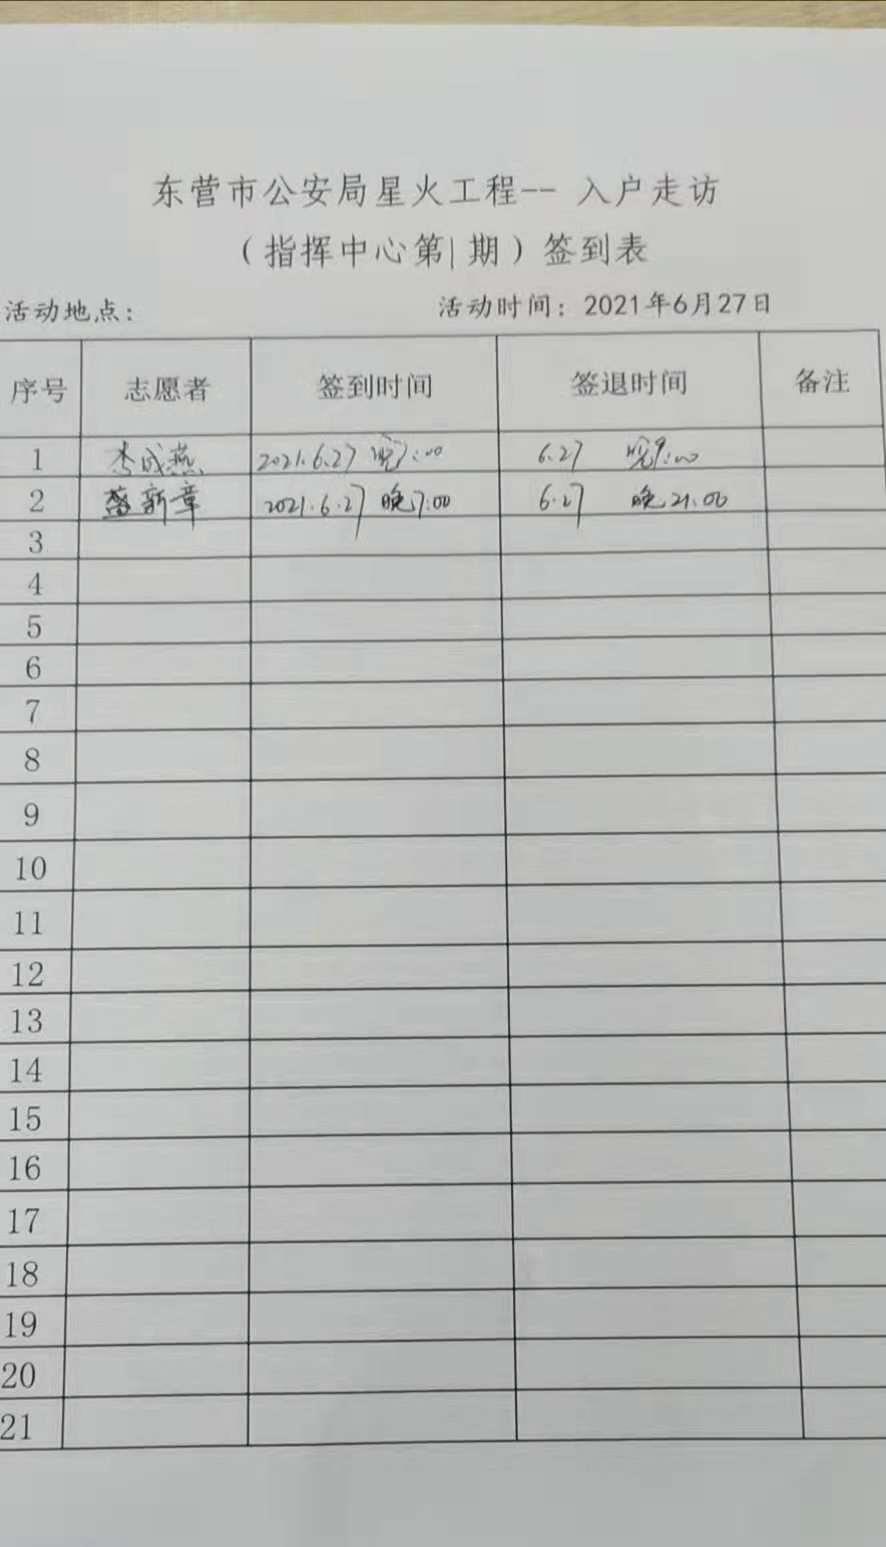 东营市公安局星火工程-- 入户走访
（指挥中心第1期）签到表
活动地点： 活动时间：2021年6月27日
序号 志愿者 签到时间 签退时间 备注
1 李成燕 2021.6.27 晚7:00 6.27 晚9:00
2 新章 2021.6.27 晚7:00 6.27 晚21:00
3
4
5
6
7
8
9
10
11
12
13
14
15
16
17
18
19
20
21